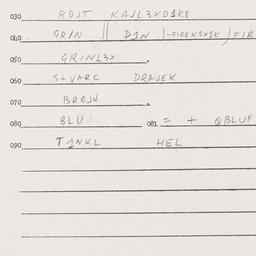 030 ROJT KAJL3XD1K8
040 GRIN || D1N )-FIREK3X1K ) FIR
050 GRINL3X .
060 S+VARC DRAJEK
070 BROJN .
080 BLU 081 = + QBLUF
090 T1NKL HEL